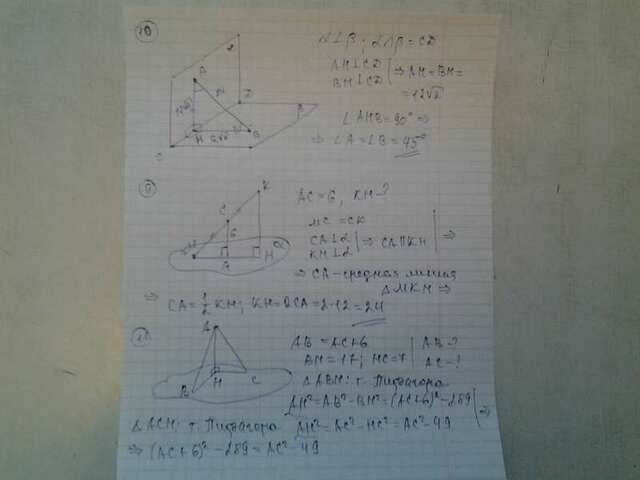 α⊥β; α∩β=CD
AH⊥CD
BH⊥CD ⇒ AH=BH=
=12√2
∠AHB=90° ⇒
⇒ ∠A=∠B=45°
A
D
β
H
B
C
K
C
6
H
α
AC=6, KH-?
MC=CK
CA⊥α
KH⊥α ⇒ CA∥KH ⇒
⇒ CA-средняя линия
ΔMKH ⇒
⇒ CA=1/2 KH; KH=2CA=2·12=24
21
A
H
C
B
AB=AC+6
BH=17; HC=7
AB-?
AC-?
ΔABH: т. Пифагора
AH²=AB²-BH²=(AC+6)²-289 ⇒
ΔACH: т. Пифагора AH²=AC²-HC²=AC²-49
⇒ (AC+6)²-289=AC²-49